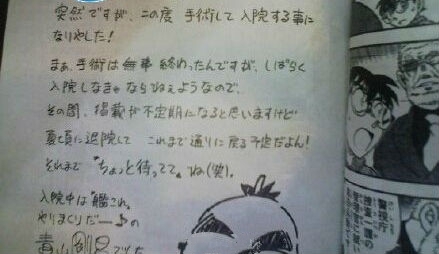 突然ですが、この度 手術して入院する事に
なりやした!
まぁ、手術は無事終わったんですが、しばらく
入院しなきゃならねぇようなので、
その間、掲載が不定期になると思いますけど
夏頃に退院して これまで通りに戻る予定だよん!
それまで〝ちょっと待ってて〟ね(笑)。
入院中は〝艦これ〟
やりまくりだー♪の
青山剛昌でした
警視庁
捜査一課の